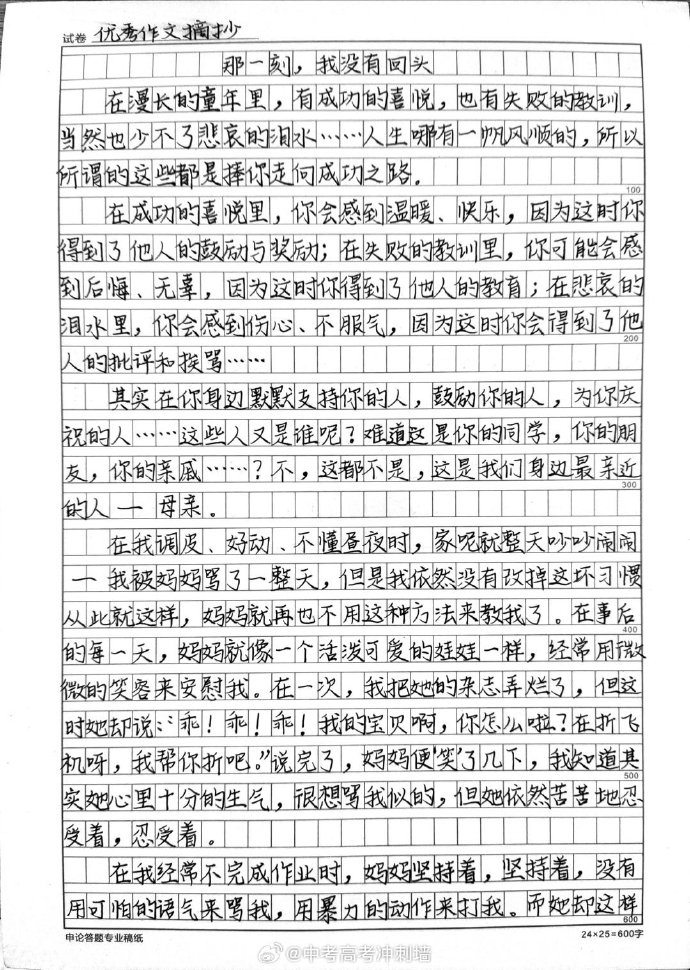 试卷 优秀作文摘抄
那一刻，我没有回头
在漫长的童年里，有成功的喜悦，也有失败的教训，
当然也少不了悲哀的泪水……人生哪有一帆风顺的，所以
所谓的这些都是捧你走向成功之路。
100
在成功的喜悦里，你会感到温暖、快乐，因为这时你
得到了他人的鼓励与奖励；在失败的教训里，你可能会感
到后悔、无辜，因为这时你得到了他人的教育；在悲哀的
泪水里，你会感到伤心、不服气，因为这时你会得到了他
200
人的批评和挨骂……
其实在你身边默默支持你的人，鼓励你的人，为你庆
祝的人……这些人又是谁呢？难道这是你的同学，你的朋
友，你的亲戚……？不，这都不是，这是我们身边最亲近
300
的人一母亲。
在我调皮、好动、不懂昼夜时，家呢就整天吵吵闹闹
一我被妈妈骂了一整天，但是我依然没有改掉这坏习惯
从此就这样，妈妈就再也不用这种方法来教我了。在事后
400
的每一天，妈妈就像一个活泼可爱的娃娃一样，经常用微
微的笑容来安慰我。在一次，我把她的杂志弄烂了，但这
时她却说：“乖！乖！乖！我的宝贝啊，你怎么啦？在折飞
机呀，我帮你折吧。”说完了，妈妈便‘笑’了几下，我知道其
500
实她心里十分的生气，很想骂我似的，但她依然苦苦地忍
受着，忍受着。
在我经常不完成作业时，妈妈坚持着，坚持着，没有
用可怕的语气来骂我，用暴力的动作来打我。而她却这样
600
申论答题专业稿纸
24×25=600字
@中考高考冲刺墙